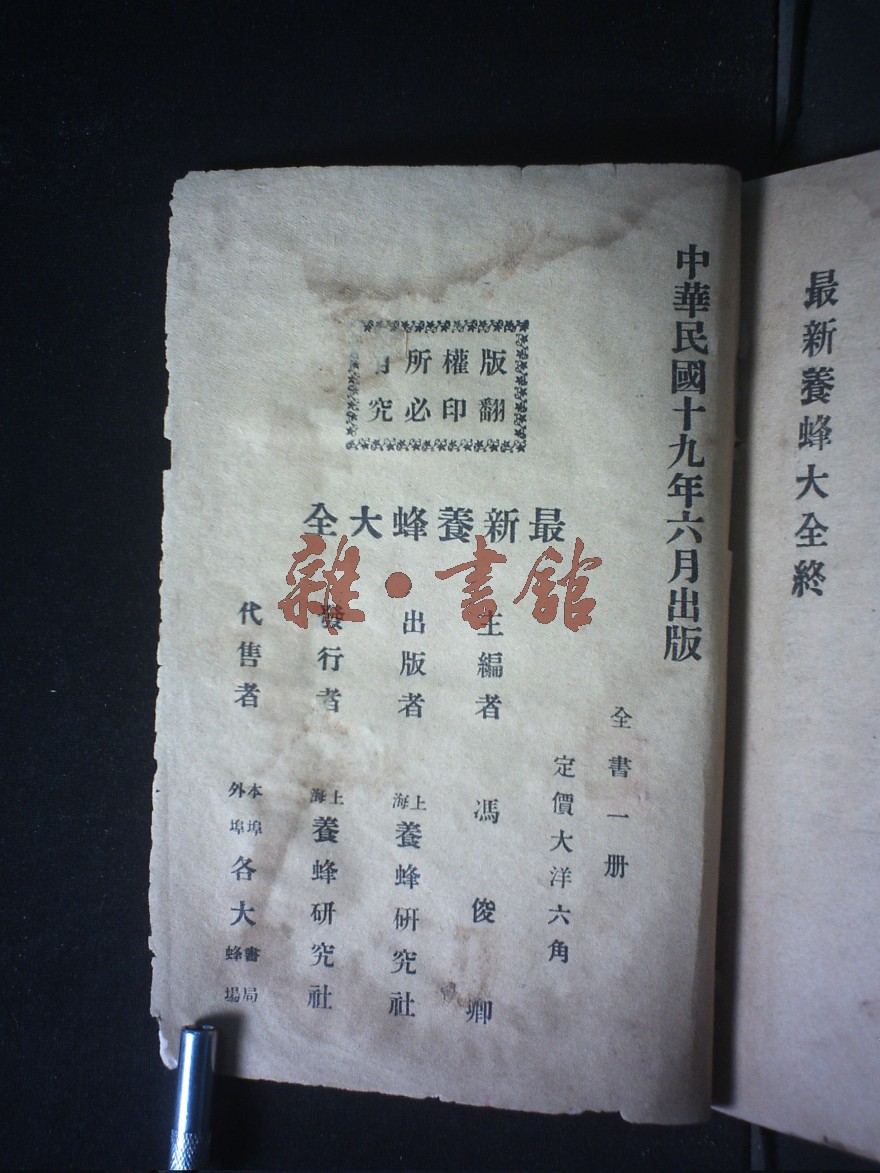 最新養蜂大全終
中華民國十九年六月出版
版權所有
翻印必究
最新養蜂大全
全書一册
定價大洋六角
主編者 馮俊卿
出版者 上海養蜂研究社
發行者 上海養蜂研究社
代售者 本埠外埠各大書局蜂場
雜·書館